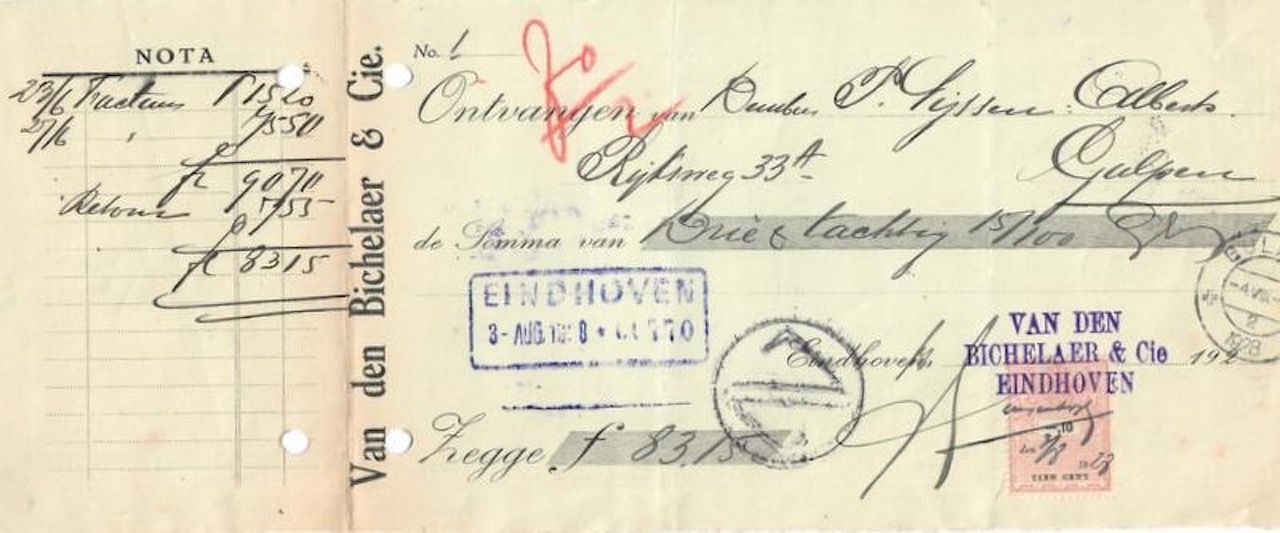 NOTA
23/6 Factuur f 15 20
27/6 " 75 50
fl 90 70
Retour 7 55
fl 83 15
Van den Bichelaer & Cie.
No. 1
Ontvangen van P. Gijssen
Rijksweg 33A
Gulpen
de Somma van Drie & tachtig 15/100
EINDHOVEN
3-AUG.
Eindhoven, 192
VAN DEN
BICHELAER & Cie
EINDHOVEN
Zegge f 83.15
-4.VIII
2
1928
10
TIEN CENT